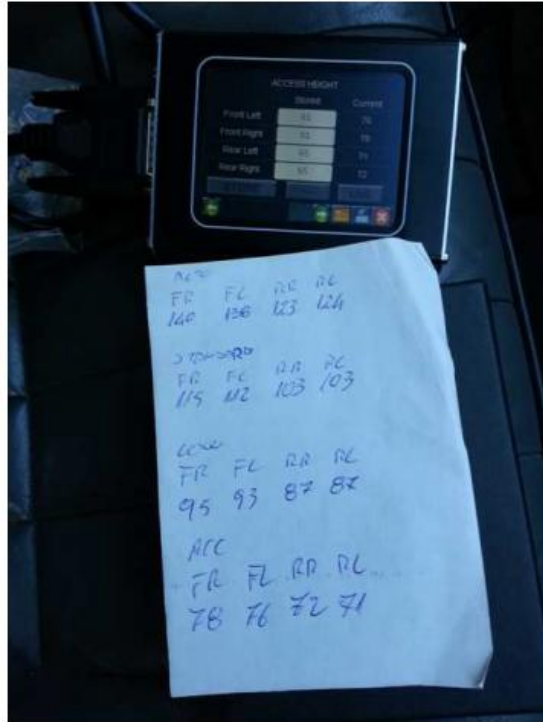 ACCESS HEIGHT
Stored Current
Front Left 76
Front Right 78
Rear Left 71
Rear Right 72
STORE
FR FL RR RL
140 136 123 124
STANDARD
FR FL RR RL
115 112 103 103
FR FL RR RL
95 93 87 87
ACC
FR FL RR RL
78 76 72 71